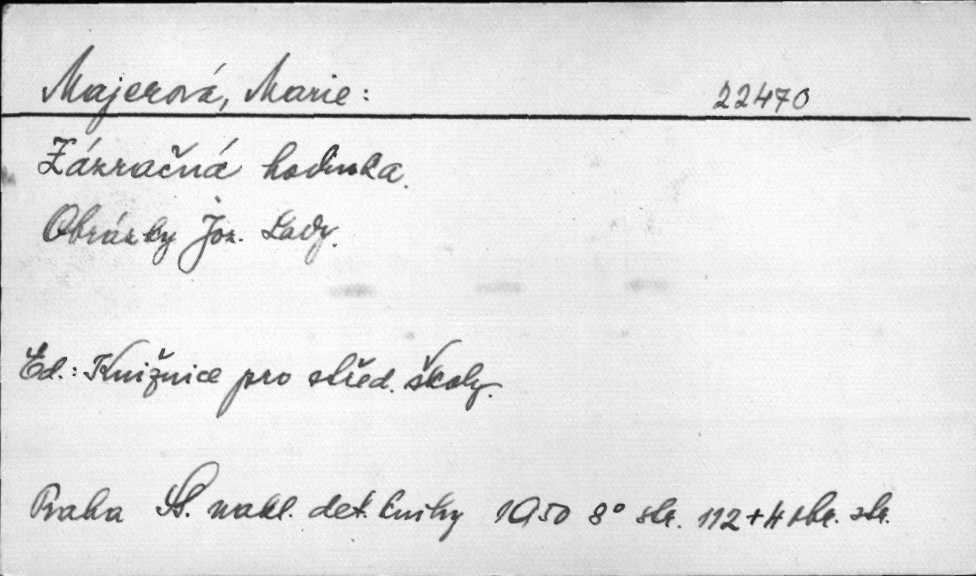 Majerová, Marie: 22470
Zázračná hodinka.
Obrázky Jos. Lady.
Ed.: Knižnice pro střed. školy.
Praha St. nakl. dět. knihy 1950 8° str. 112+4 obr. str.